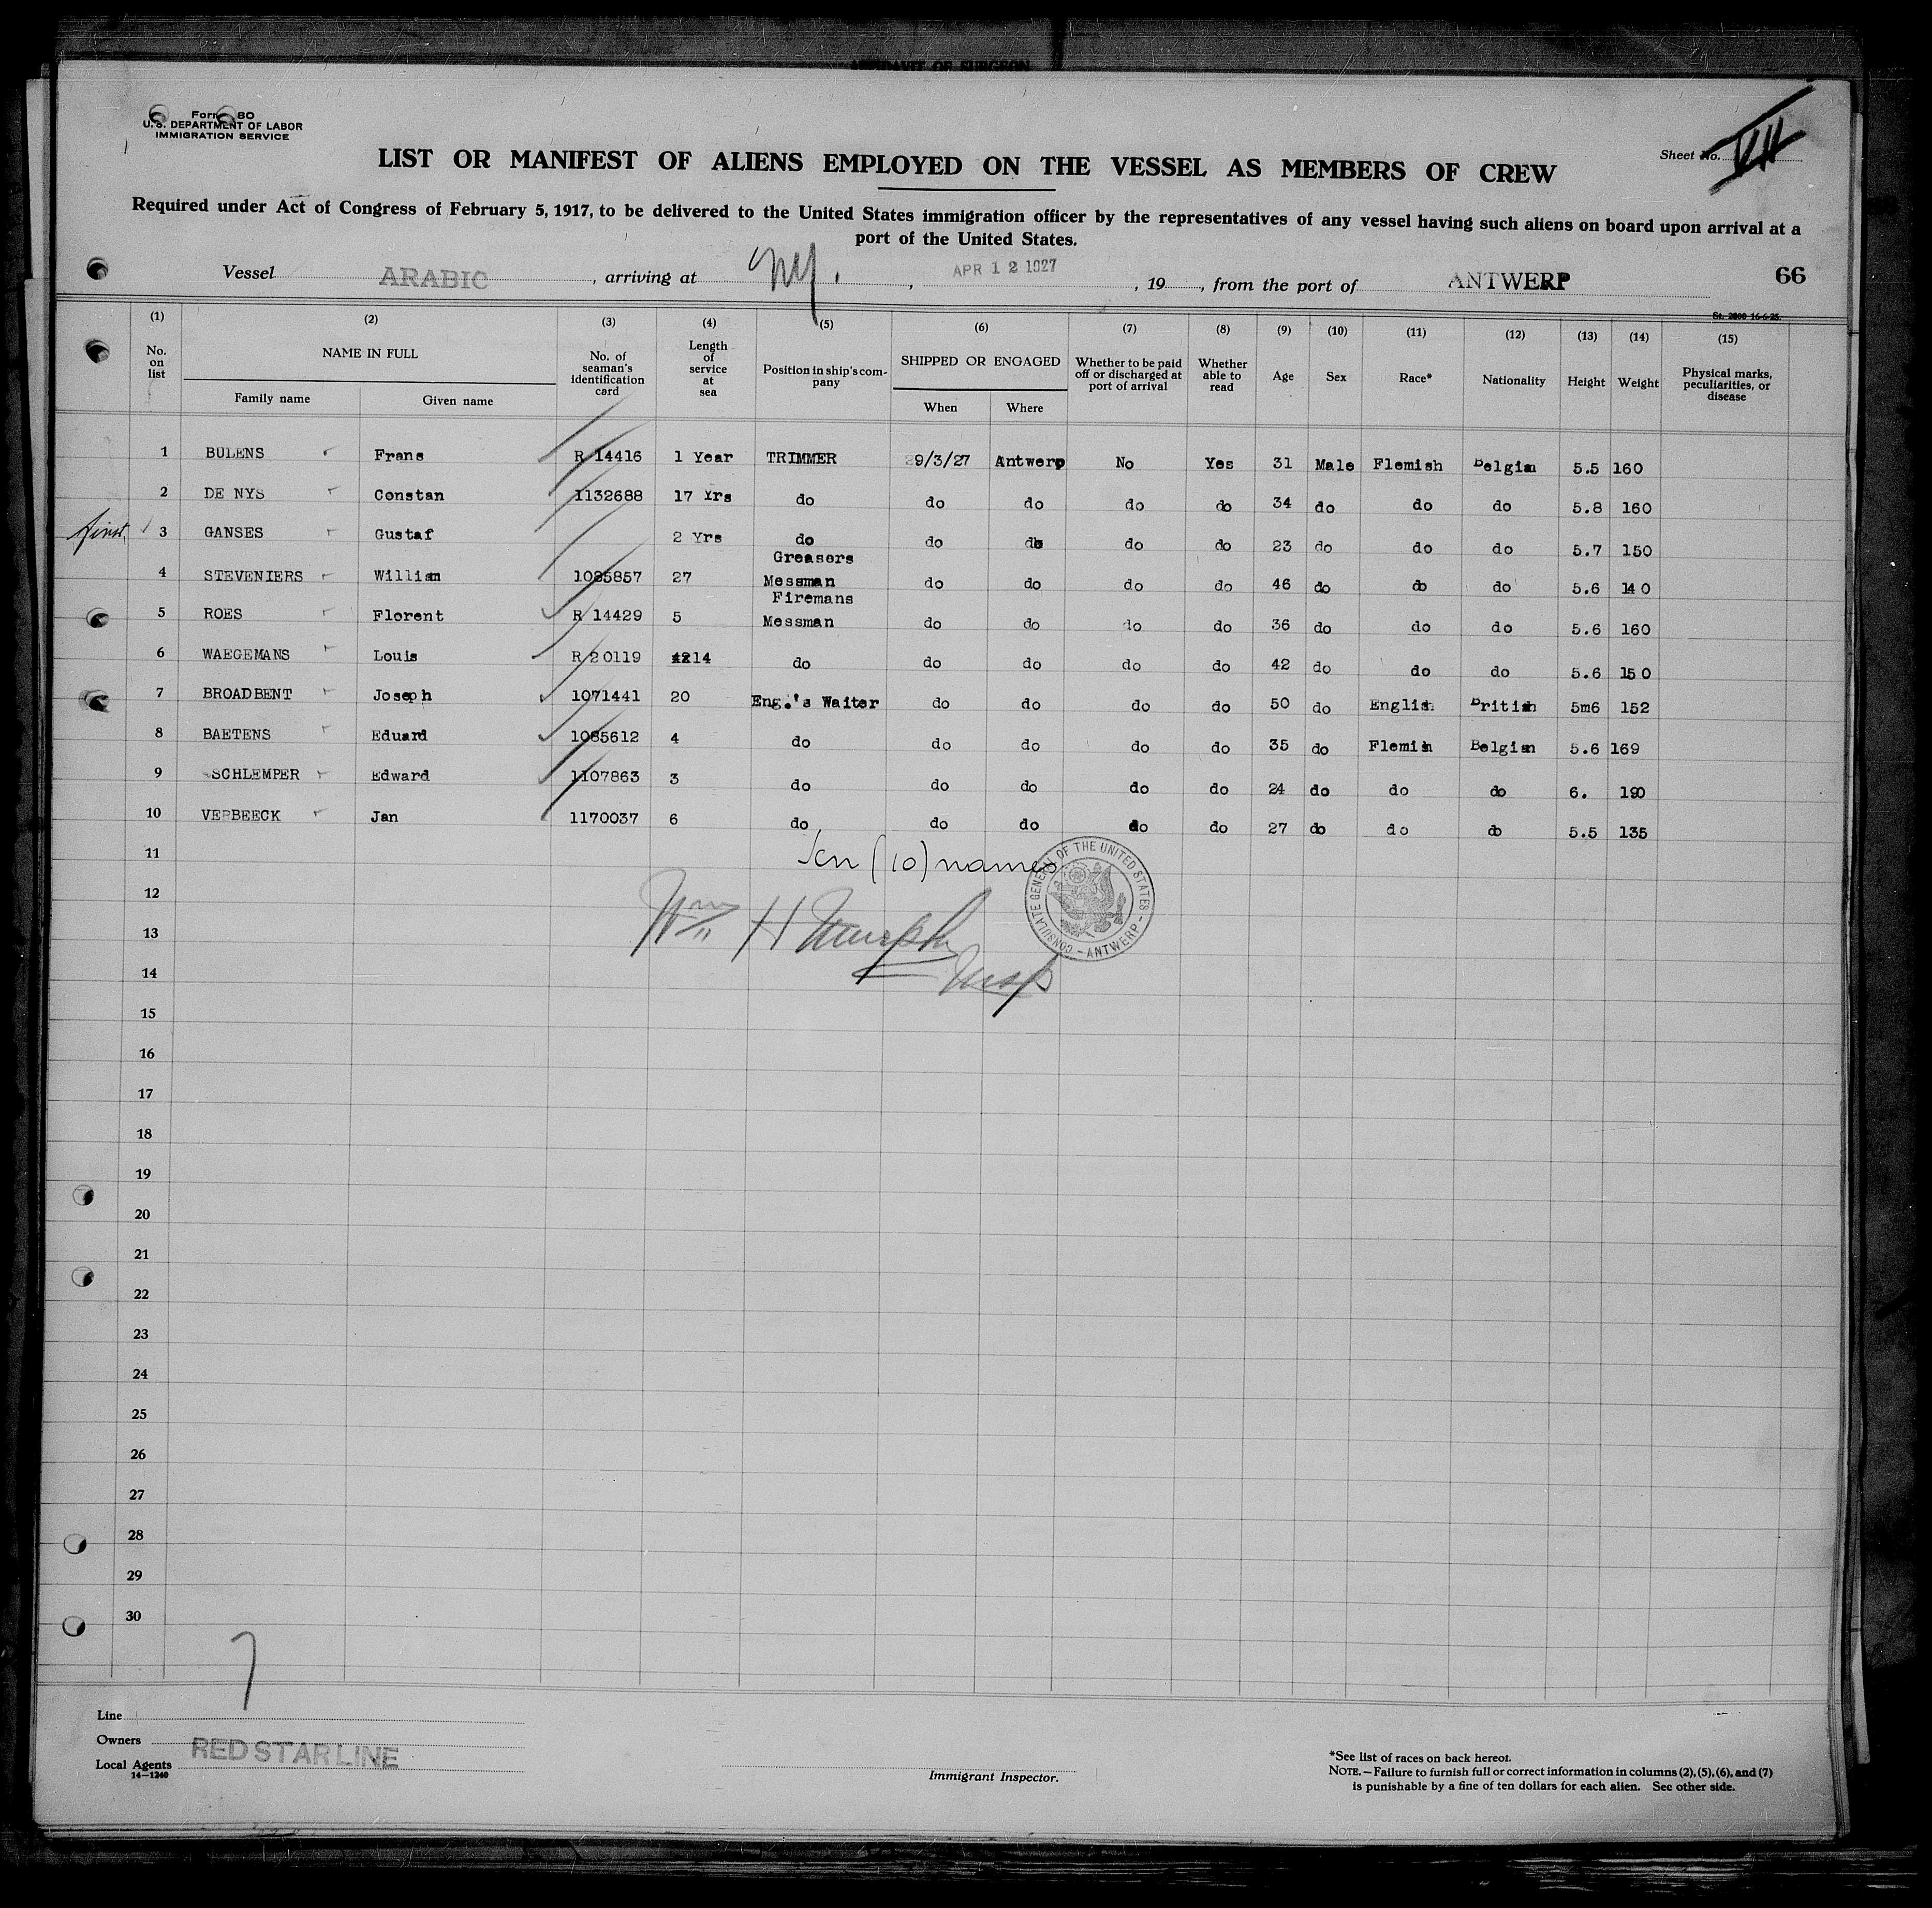 AFFIDAVIT OF SURGEON
Form 680
U. S. DEPARTMENT OF LABOR
IMMIGRATION SERVICE
Sheet No. VII
LIST OR MANIFEST OF ALIENS EMPLOYED ON THE VESSEL AS MEMBERS OF CREW
Required under Act of Congress of February 5, 1917, to be delivered to the United States immigration officer by the representatives of any vessel having such aliens on board upon arrival at a
port of the United States.
Vessel ARABIC, arriving at N.Y., APR 12 1927, 19, from the port of ANTWERP 66
St. 2800 16-6-25.
(1) (2) (3) (4) (5) (6) (7) (8) (9) (10) (11) (12) (13) (14) (15)
No. on list NAME IN FULL No. of seaman's identification card Length of service at sea Position in ship's company SHIPPED OR ENGAGED Whether to be paid off or discharged at port of arrival Whether able to read Age Sex Race* Nationality Height Weight Physical marks, peculiarities, or disease
Family name Given name When Where
1 BULENS Frans R 14416 1 Year TRIMMER 29/3/27 Antwerp No Yes 31 Male Flemish Belgian 5.5 160
2 DE NYS Constan 1132688 17 Yrs do do do do do 34 do do do 5.8 160
first 3 GANSES Gustaf 2 Yrs do do do do do 23 do do do 5.7 150
Greasers
4 STEVENIERS William 1085857 27 Messman do do do do 46 do do do 5.6 140
Firemans
5 ROES Florent R 14429 5 Messman do do do do 36 do do do 5.6 160
6 WAEGEMANS Louis R 20119 14 do do do do do 42 do do do 5.6 150
7 BROADBENT Joseph 1071441 20 Eng.'s Waiter do do do do 50 do English British 5m6 152
8 BAETENS Eduard 1085612 4 do do do do do 35 do Flemish Belgian 5.6 169
9 SCHLEMPER Edward 1107863 3 do do do do do 24 do do do 6. 190
10 VERBEECK Jan 1170037 6 do do do do do 27 do do do 5.5 135
11 Ten (10) names
CONSULATE GENERAL OF THE UNITED STATES - ANTWERP -
12
13 Wm H Murphy
14 Insp
15
16
17
18
19
20
21
22
23
24
25
26
27
28
29
30
7
Line
Owners
RED STAR LINE
Local Agents
14—1240
Immigrant Inspector.
*See list of races on back hereof.
NOTE.—Failure to furnish full or correct information in columns (2), (5), (6), and (7)
is punishable by a fine of ten dollars for each alien. See other side.